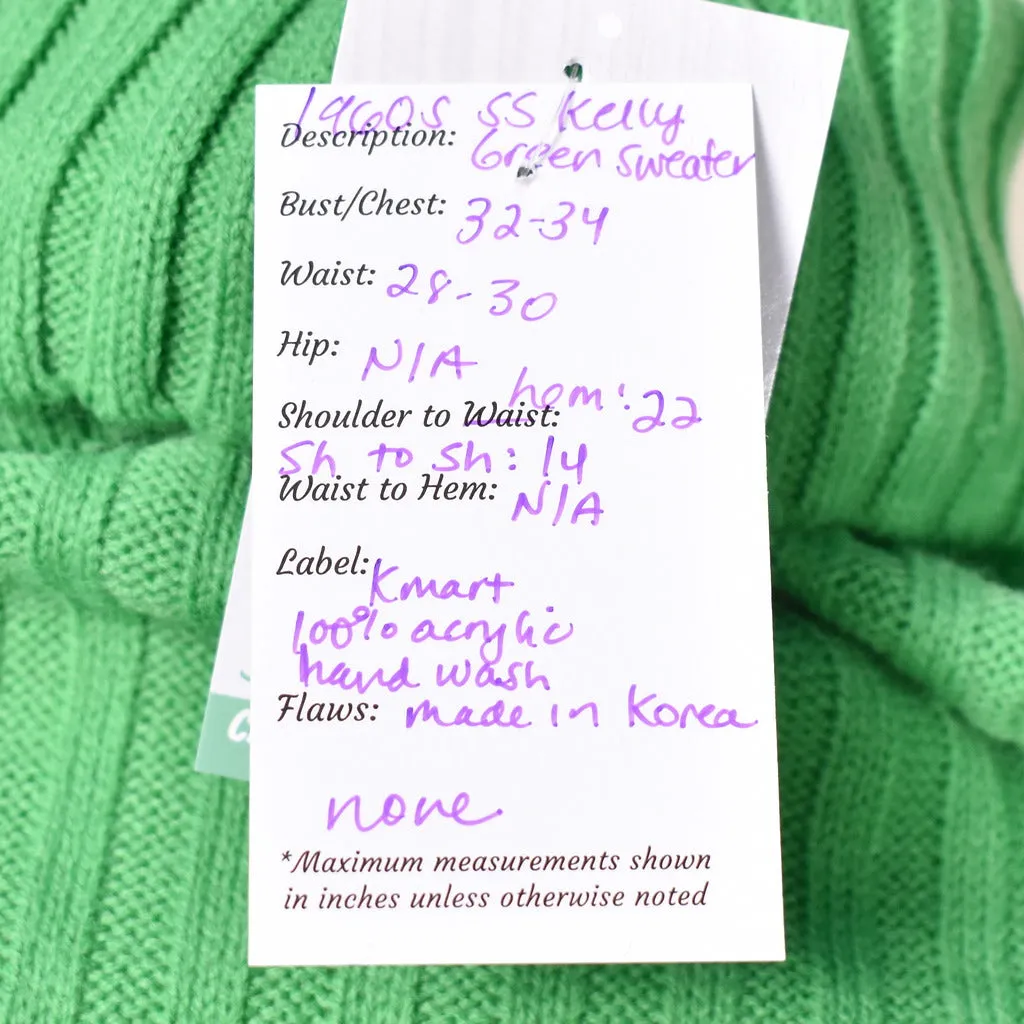 1960s SS Kelly
Description: Green sweater
Bust/Chest: 32-34
Waist: 28-30
Hip: N/A
hem:
Shoulder to Waist: 22
Sh to sh: 14
Waist to Hem: N/A
Label: Kmart
100% acrylic
hand wash
Flaws: made in Korea
none
*Maximum measurements shown
in inches unless otherwise noted